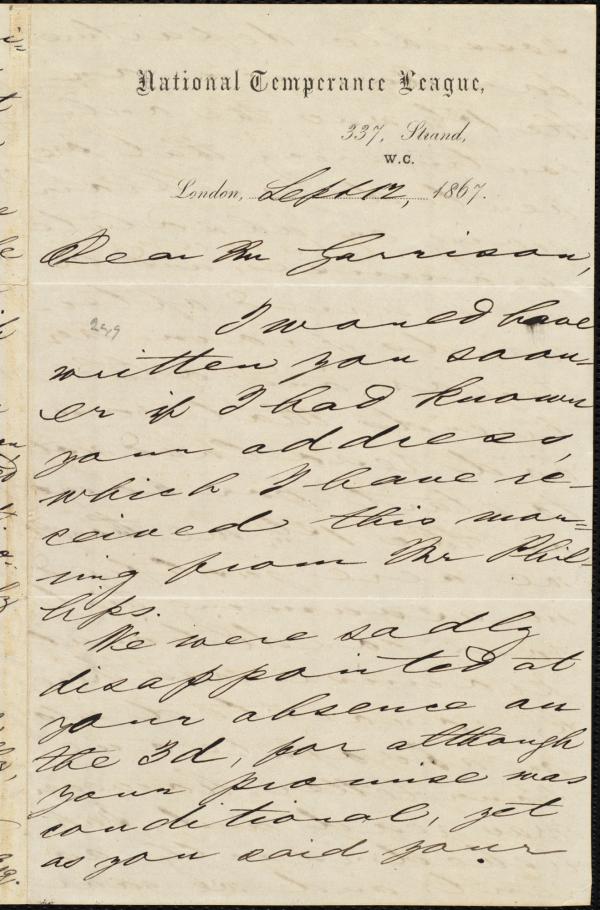 National Temperance League,
337, Strand,
W.C.
London, Sept 12, 1867.
Dear Mr Garrison,
I would have
written you soon-
er if I had known
your address,
which I have re-
ceived this mor-
ning from Mr Phil-
lips.
We were sadly
disappointed at
your absence on
the 3d, for although
your promise was
conditional, yet
as you said your